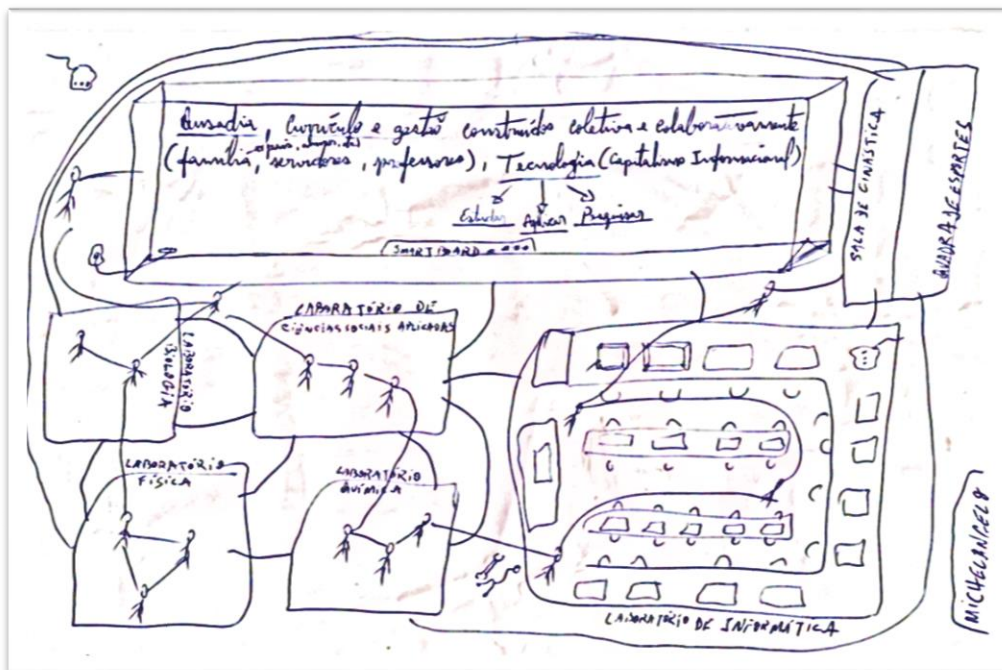 Ousadia, Currículo e gestão construídos coletiva e colaborativamente
(família, servidores, professores), Tecnologia (Capitalismo Informacional)
Estudar Aplicar Pesquisar
SMARTBOARD
SALA DE GINÁSTICA
QUADRA DE ESPORTES
LABORATÓRIO BIOLOGIA
LABARATÓRIO DE
CIÊNCIAS SOCIAIS APLICADAS
LABORATÓRIO
FÍSICA
LABORATÓRIO
QUÍMICA
LABORATÓRIO DE INFORMÁTICA
MICHELANGELO